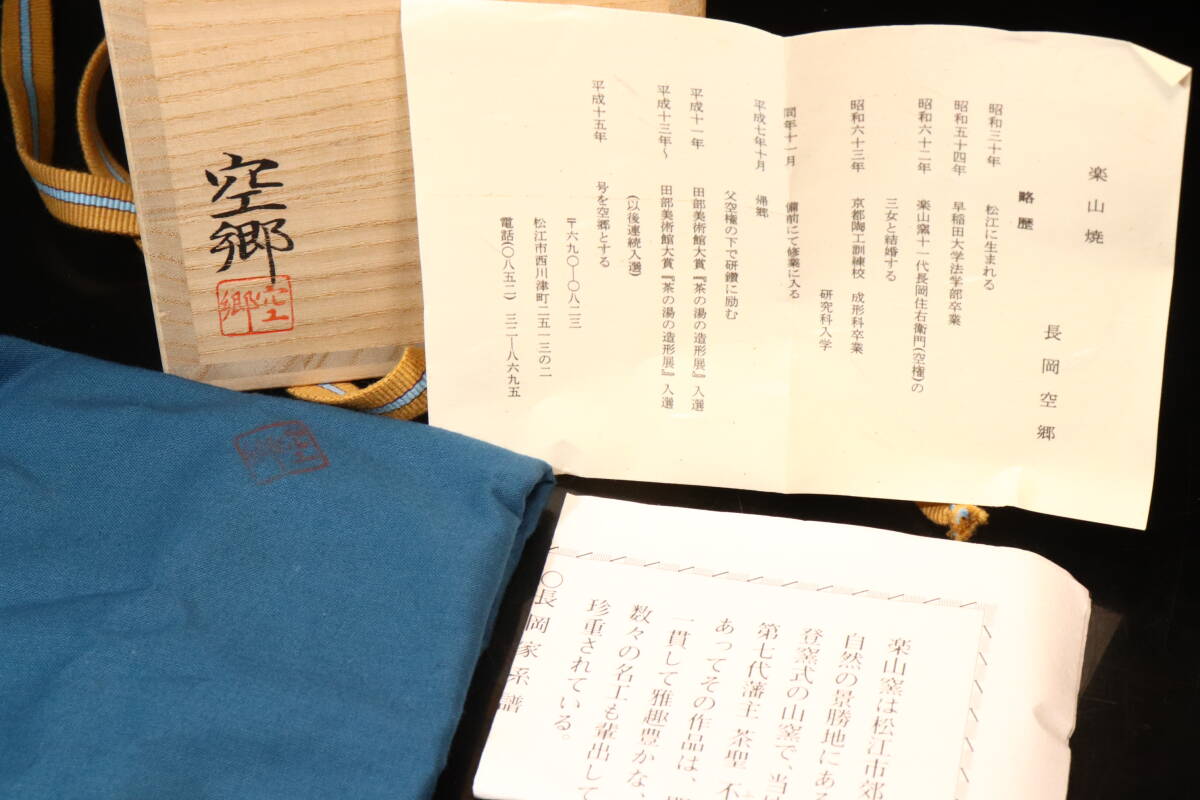 空郷
空郷
楽山焼
長岡空郷
略歴
昭和三十年　松江に生まれる
昭和五十四年　早稲田大学法学部卒業
昭和六十二年　楽山窯十一代長岡住右衛門(空権)の
三女と結婚する
昭和六十三年　京都陶工訓練校　成形科卒業
研究科入学
同年十一月　備前にて修業に入る
平成七年十月　帰郷
父空権の下で研鑽に励む
平成十一年　田部美術館大賞『茶の湯の造形展』入選
平成十三年〜　田部美術館大賞『茶の湯の造形展』入選
(以後連続入選)
平成十五年　号を空郷とする
〒六九〇―〇八二三
松江市西川津町二五一三の二
電話(〇八五二)　三二―八六九五
空郷
楽山窯は松江市郊
自然の景勝地にある
登窯式の山窯で、当
第七代藩主　茶聖　不
あってその作品は、
一貫して雅趣豊かな、
数々の名工も輩出して
珍重されている。
〇長岡家系譜